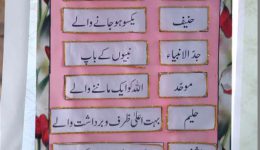 حنیف یکسو ہو جانے والے
جدّ الانبیاء نبیوں کے باپ
موحّد اللہ کو ایک ماننے والے
حلیم بہت اعلیٰ ظرف و برداشت والے